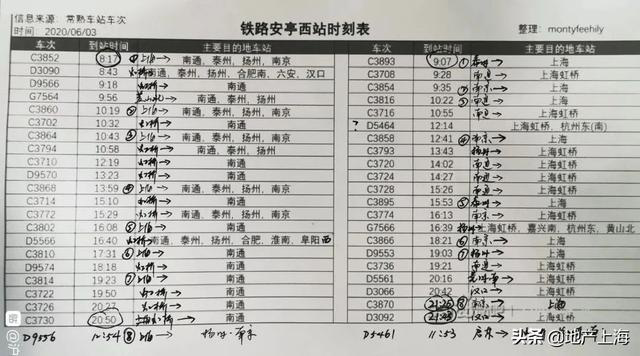 信息来源：常熟车站车次
时间 2020/06/03
铁路安亭西站时刻表
整理：montyfeehily
车次 到站时间 主要目的地车站 车次 到站时间 主要目的地车站
C3852 8:17 ① 上海→ 南通、泰州、扬州、南京 C3893 9:07 ① 泰州→ 上海
D3090 8:43 虹桥→ 南通、泰州、扬州、合肥南、六安、汉口 C3708 9:28 南通→ 上海虹桥
D9566 9:18 虹桥→ 南通 C3854 9:35 ② 南京→ 上海
G7564 9:56 → 南通、泰州、扬州 C3816 10:22 ③ 南通→ 上海
C3860 10:19 ② 上海→ 南通、泰州、扬州、南京 C3716 10:55 南通→ 上海虹桥
C3702 10:32 虹桥→ 南通 ? D5464 12:14 上海虹桥、杭州东(南)
C3864 10:43 ③ 上海→ 南通、泰州、扬州、南京 C3858 12:41 ④ 南京→ 上海
C3794 10:58 虹桥→ 南通、泰州、扬州 C3793 13:43 扬州→ 上海虹桥
C3710 12:19 虹桥→ 南通 C3720 14:02 南通→ 上海虹桥
D9570 13:23 虹桥→ 南通 C3724 14:27 南通→ 上海虹桥
C3868 13:59 ④ 上海→ 南通、泰州、扬州、南京 C3728 15:26 南通→ 上海虹桥
C3714 15:10 虹桥→ 南通 C3895 15:53 ⑤ 泰州→ 上海
C3772 15:29 虹桥→ 南通、泰州、扬州 C3774 16:13 南通→ 上海虹桥
C3802 16:08 ⑤ 上海→ 南通 G7566 16:39 扬州→ 上海虹桥、嘉兴南、杭州东、黄山北
D5566 16:40 虹桥→ 南通、泰州、扬州、合肥、淮南、阜阳西 C3866 18:21 ⑥ 南京→ 上海
C3810 17:31 ⑥ 上海→ 南通 D9553 19:03 ⑦ 扬州→ 上海
D9574 18:18 虹桥→ 南通 C3736 19:21 南通→ 上海虹桥
C3814 19:23 ⑦ 上海→ 南通 D5561 20:16 → 上海虹桥
C3722 19:50 虹桥→ 南通 D3066 20:42 汉口→ 上海虹桥
C3726 20:27 虹桥→ 南通 C3870 21:25 ⑧ 南京→ 上海
C3730 20:50 上海虹桥→ 南通 D3092 汉口→ 上海虹桥
D9556 12:54 ⑧ 上海→ 扬州 D5461 11:53 启东→
头条 @地产上海